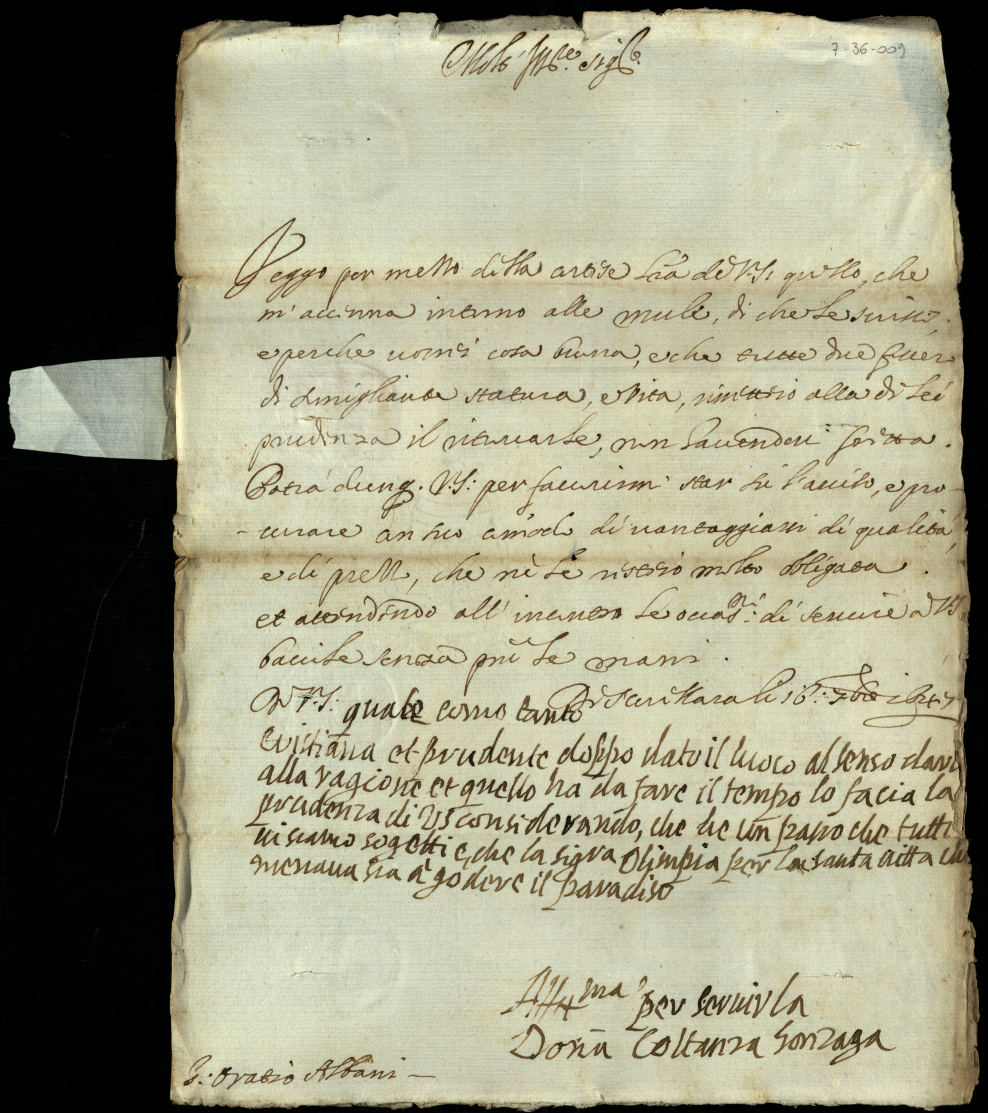 7-36-009
Molt' Ill.re sig.r
Veggo per mezzo della cortese l'ra di V.S: quello, che
m'accenna intorno alle mule, di che le scrissi,
e perche vorrei cosa buona, e che tutte due fusser
di somigliante statura, e vita, rimetto alla di lei
prudenza il ritrovarle, non havendovi fretta.
Potrà dunq. V.S: per favorirmi star sù l'aviso, e pro-
curare an suo comodo di vantaggiarmi di qualità,
e di prezzo, che nè le resterò molto obligata.
et attendendo all'incontro le occas.ni di servire à V.S
bacile senza più le mani.
Di V.S: quale como tanto Di 16: 7bre
cristiana et prudente doppo dato il luoco al senso dara
alla ragione et quello ha da fare il tempo lo facia la
prudenza di VS considerando, che he un passo che tutti
vi siamo sogetti e, che la sig.ra Olimpia per la santa vitta che
menava sia à godere il paradiso
Aff.ma per servirla
Doña Costanza Gonzaga
S: Oratio Albani